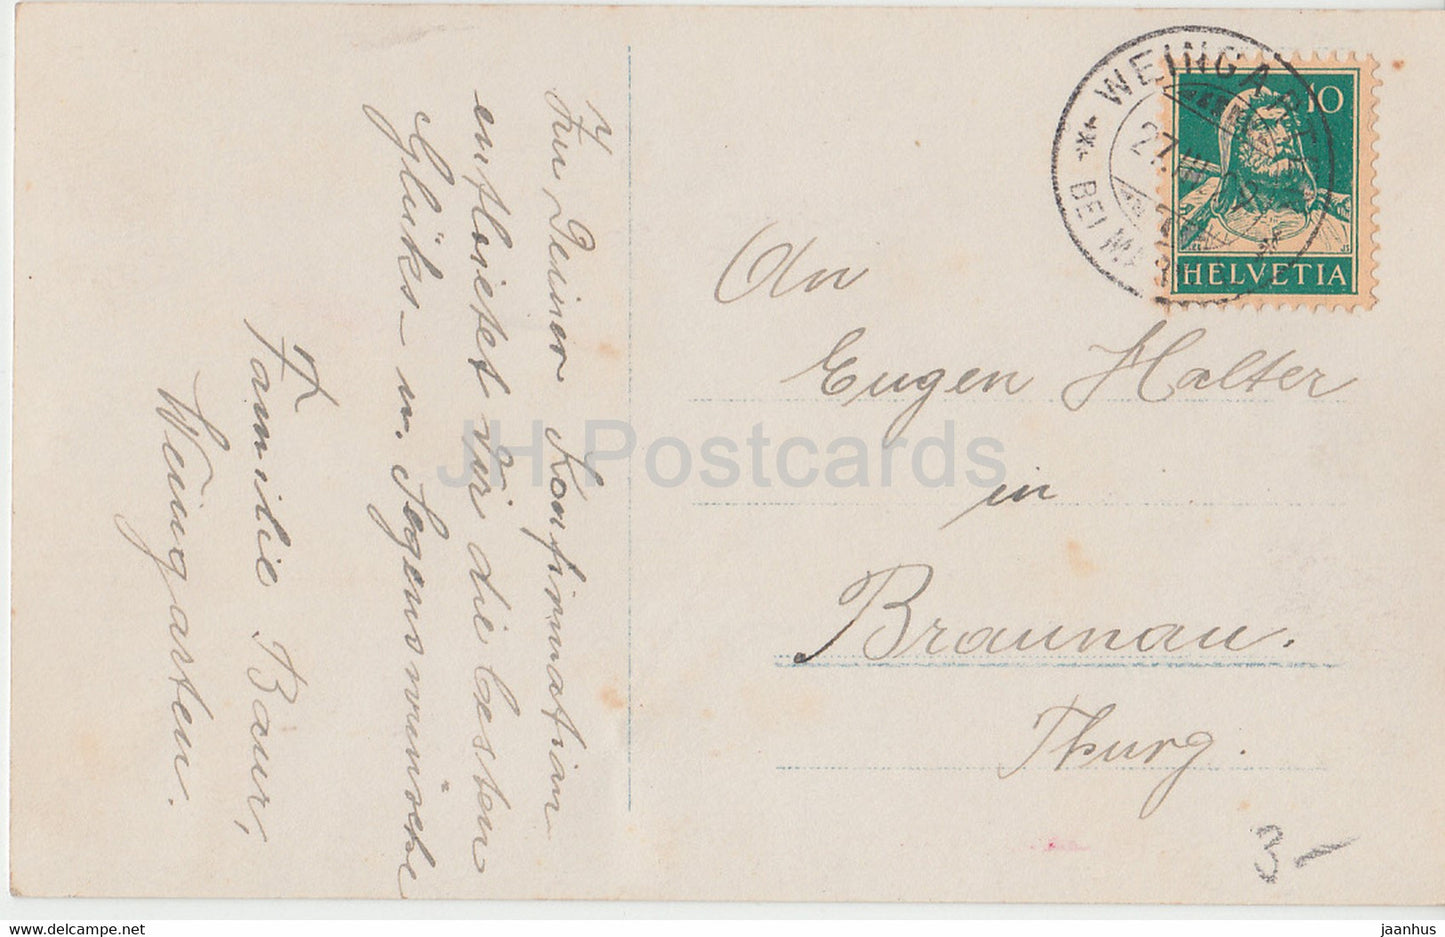 Zur Deiner Konfirmation
entbietet wir die besten
Glüks- u. Segenswünsche
Familie Baur,
Weingarten.
An
Eugen Halter
in
Braunau.
Thurg.
WEINGARTEN
BEI
27. III
10
HELVETIA
3-
JH Postcards
www.delcampe.net
jaanhus